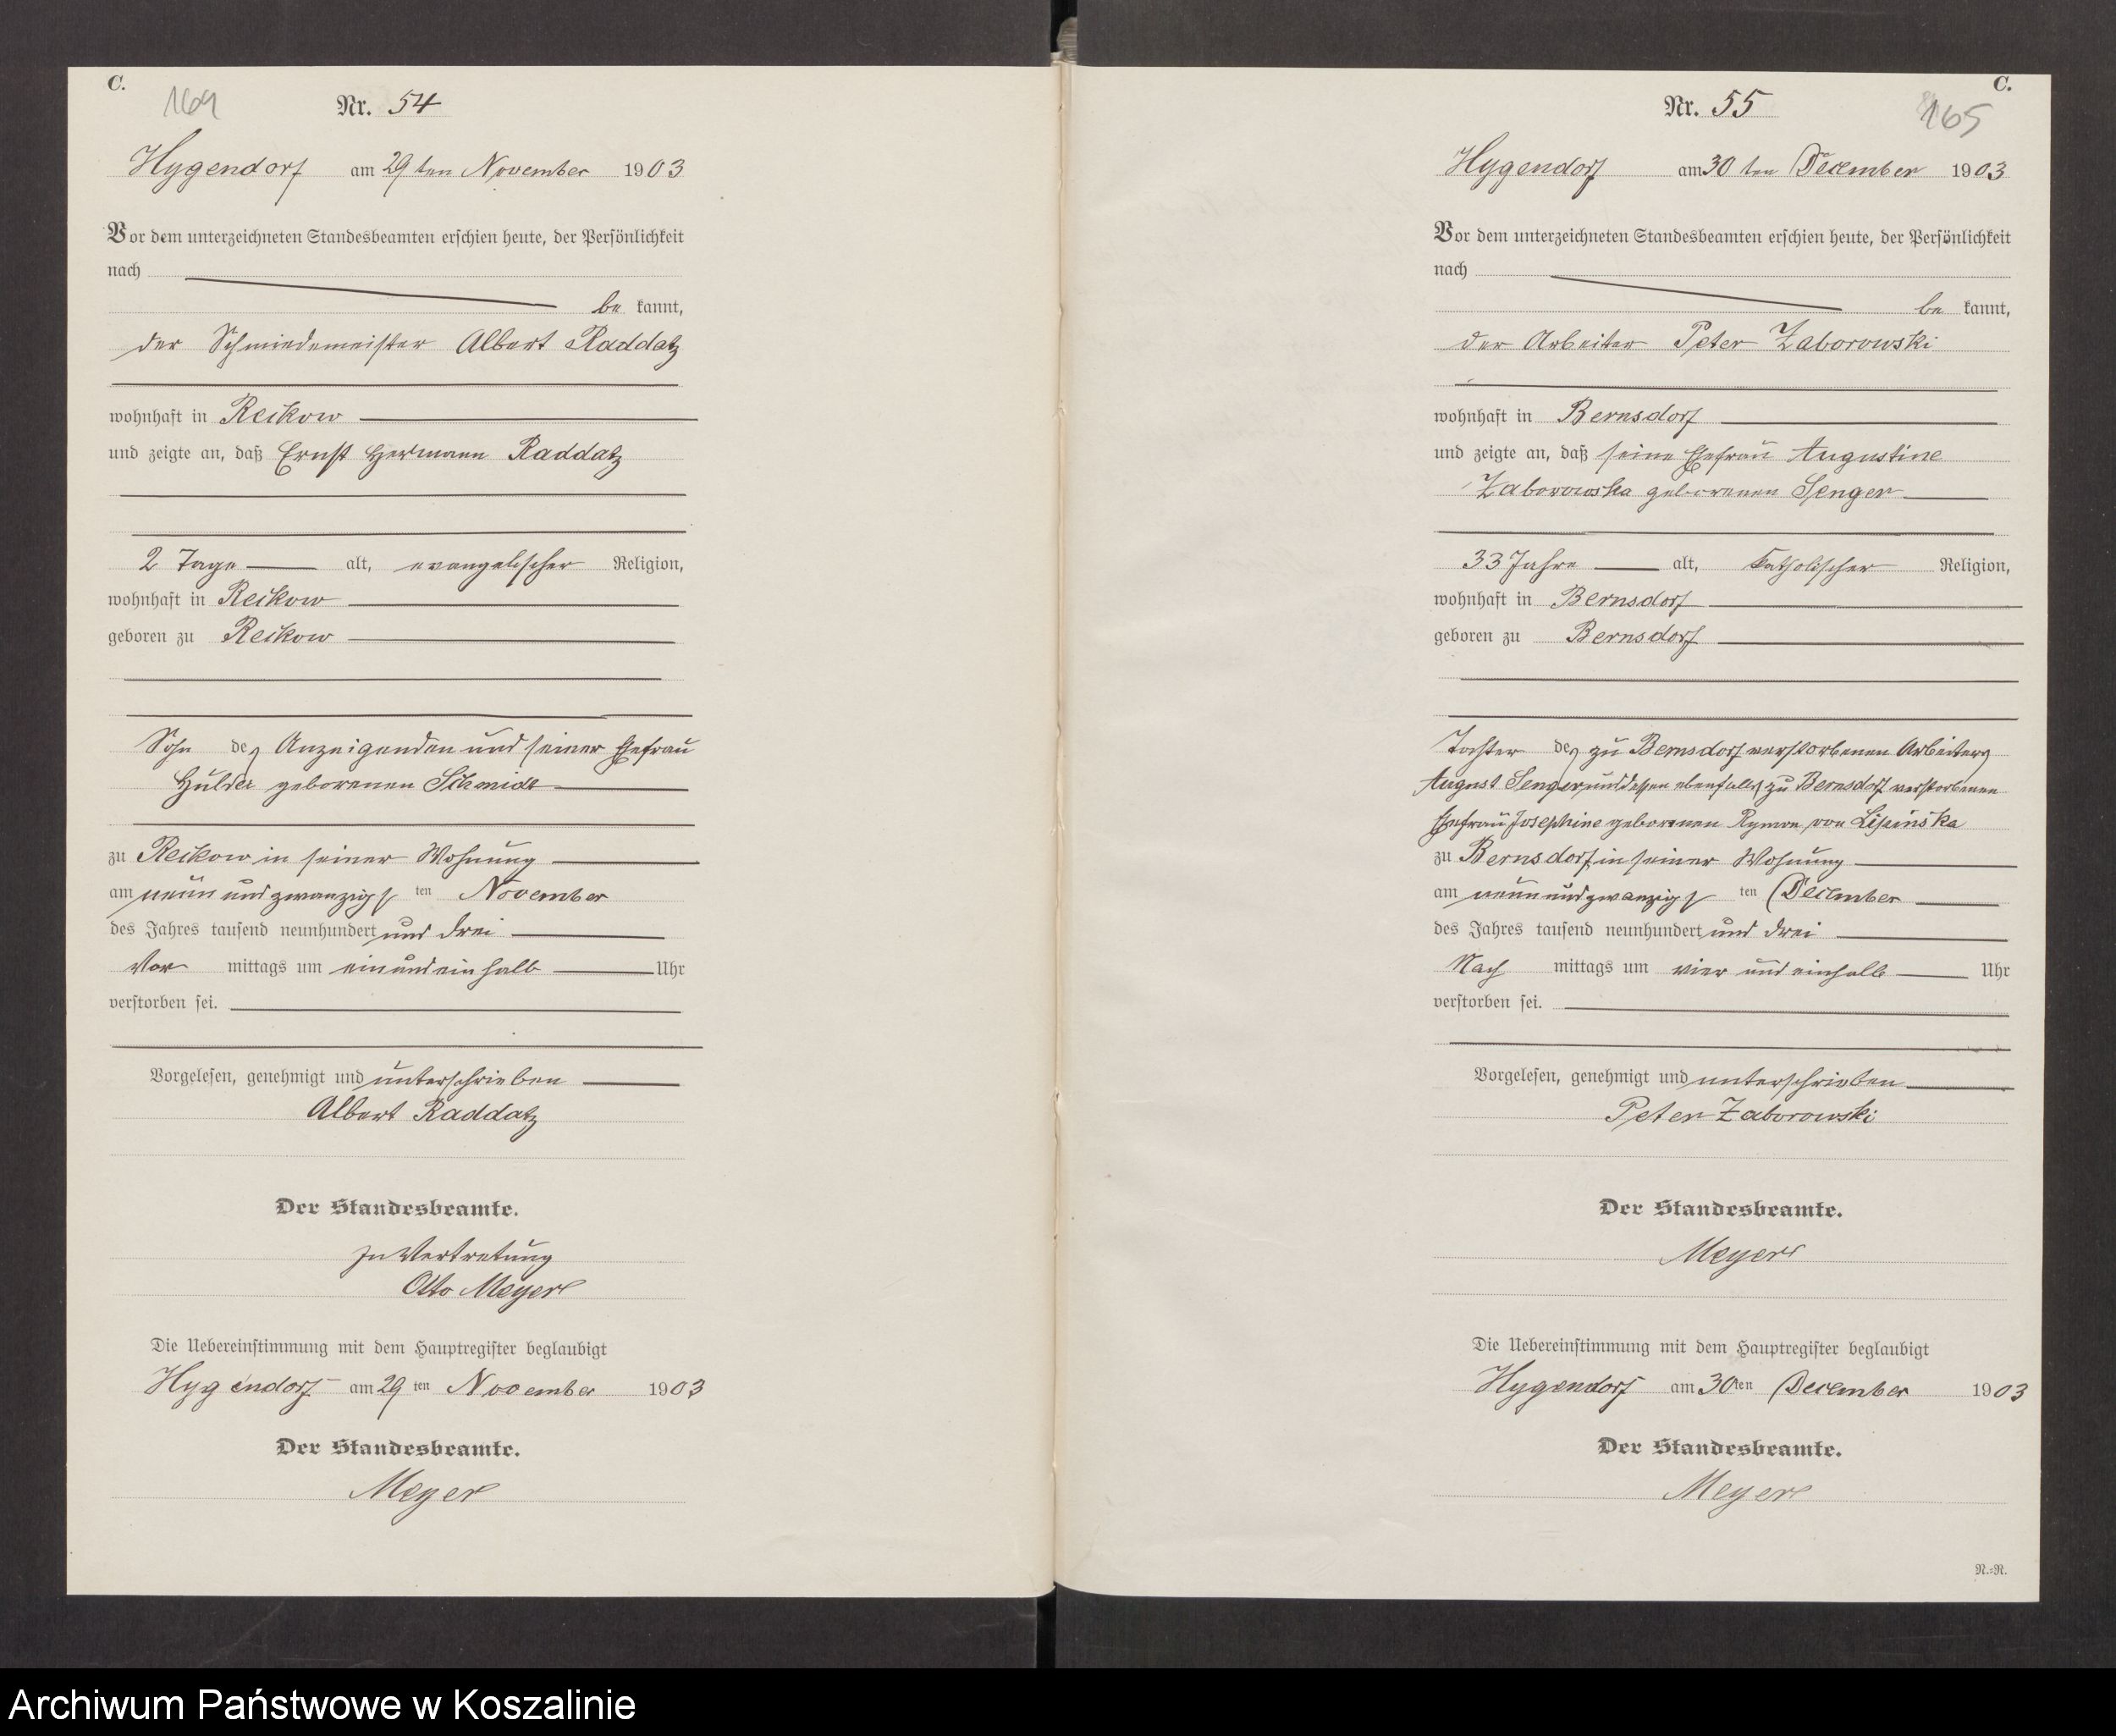 C.
164
Nr. 54
Hygendorf am 29ten November 1903
Vor dem unterzeichneten Standesbeamten erschien heute, der Persönlichkeit
nach
be kannt,
der Schmiedemeister Albert Raddatz
wohnhaft in Reikow
und zeigte an, daß Ernst Hermann Raddatz
2 Tage alt, evangelischer Religion,
wohnhaft in Reikow
geboren zu Reikow
Sohn des Anzeigenden und seiner Ehefrau
Hulda geborenen Schmidt
zu Reikow in seiner Wohnung
am neun und zwanzigsten November
des Jahres tausend neunhundert und drei
Vor mittags um ein und ein halb Uhr
verstorben sei.
Vorgelesen, genehmigt und unterschrieben
Albert Raddatz
Der Standesbeamte.
In Vertretung
Otto Meyer
Die Uebereinstimmung mit dem Hauptregister beglaubigt
Hygendorf am 29ten November 1903
Der Standesbeamte.
Meyer
C.
165
Nr. 55
Hygendorf am 30ten December 1903
Vor dem unterzeichneten Standesbeamten erschien heute, der Persönlichkeit
nach
be kannt,
der Arbeiter Peter Zaborowski
wohnhaft in Bernsdorf
und zeigte an, daß seine Ehefrau Augustine
Zaborowska geborenen Senger
33 Jahre alt, katholischer Religion,
wohnhaft in Bernsdorf
geboren zu Bernsdorf
Tochter des zu Bernsdorf verstorbenen Arbeiters
August Senger und dessen ebenfalls zu Bernsdorf verstorbenen
Ehefrau Josephine geborenen Rymon von Lipinska
zu Bernsdorf in seiner Wohnung
am neun und zwanzigsten December
des Jahres tausend neunhundert und drei
Nach mittags um vier und einhalb Uhr
verstorben sei.
Vorgelesen, genehmigt und unterschrieben
Peter Zaborowski
Der Standesbeamte.
Meyer
Die Uebereinstimmung mit dem Hauptregister beglaubigt
Hygendorf am 30ten December 1903
Der Standesbeamte.
Meyer
N.=N.
Archiwum Państwowe w Koszalinie